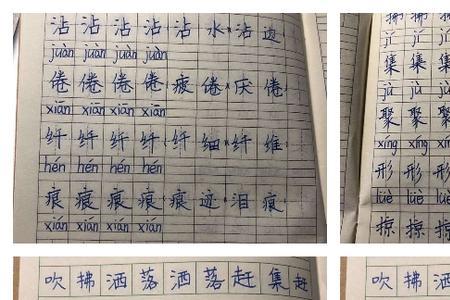 沾 沾 沾 沾 沾 水 沾 边
juàn juàn juàn juàn
倦 倦 倦 倦 疲 倦 厌 倦
xiān xiān xiān xiān
纤 纤 纤 纤 纤 细 纤 维
hén hén hén hén
痕 痕 痕 痕 痕 迹 泪 痕
xián xián xián xián
拂 拂 拂
jí jí
集 集 集
jù jù jù
聚 聚 聚
xíng xíng
形 形 形
lüè lüè
掠 掠 掠
吹 拂 洒 落 洒 落 赶 集 赶
吹 拂 洒